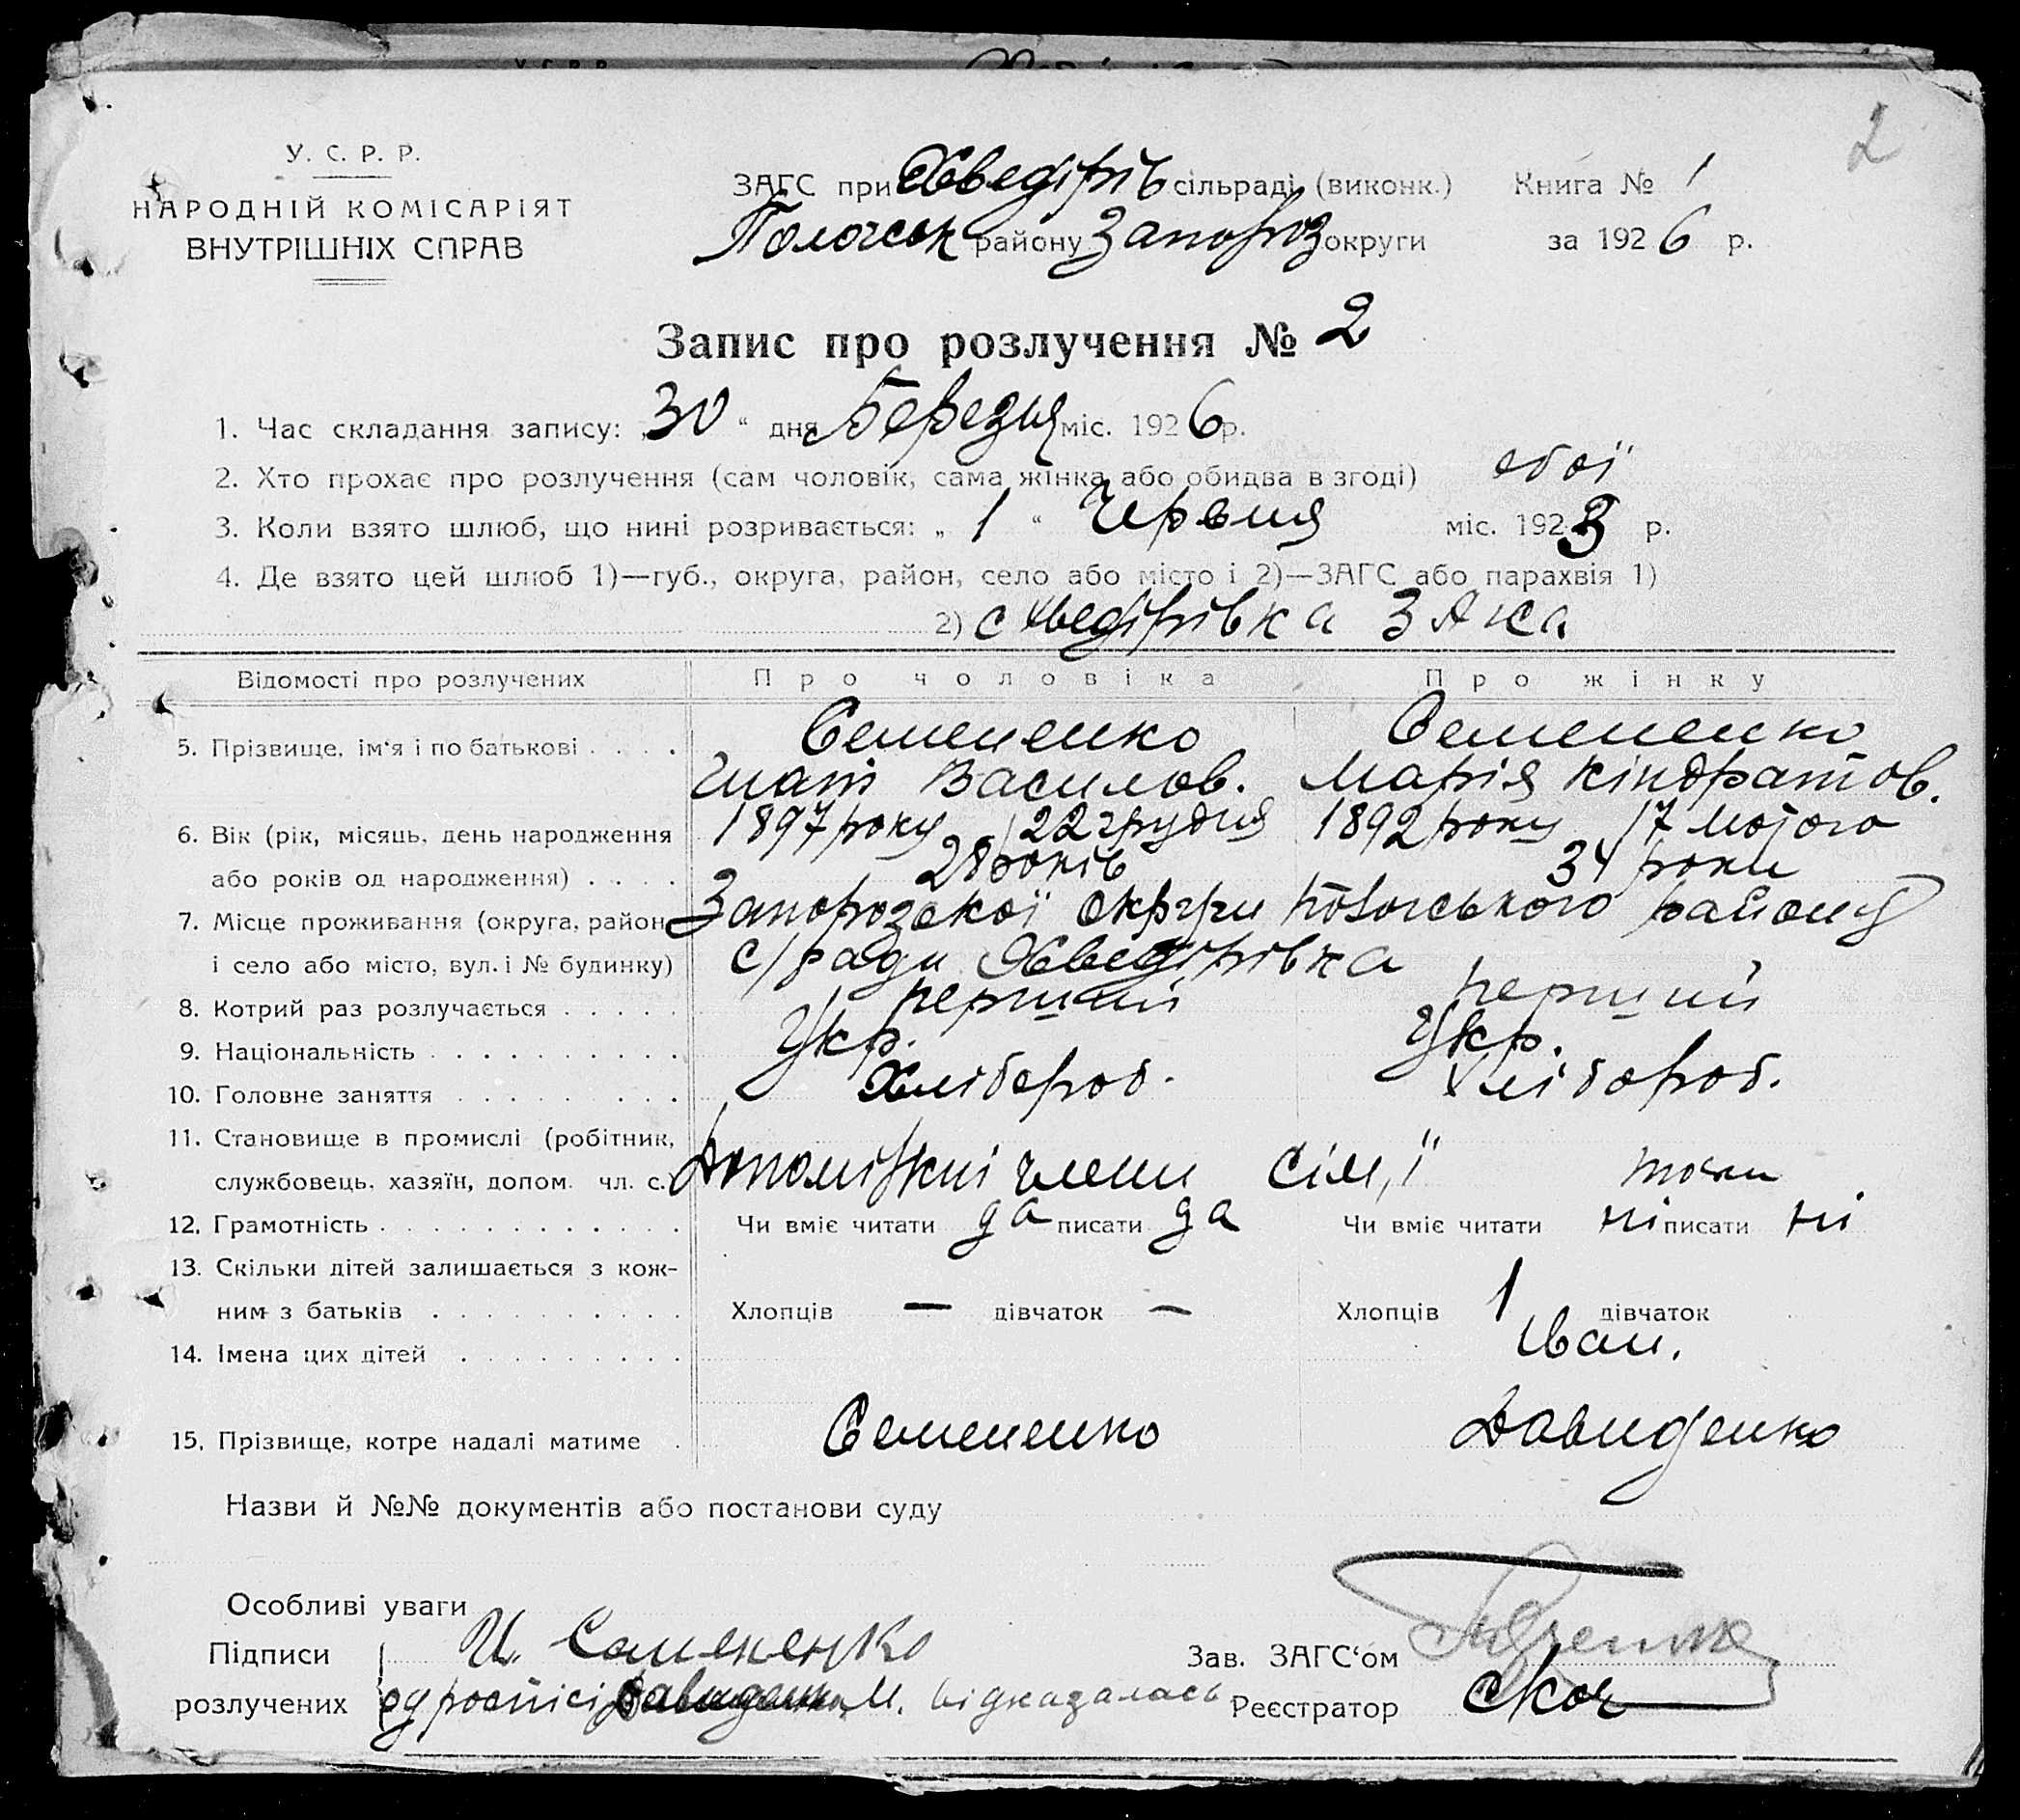 2
У. С. Р. Р.
НАРОДНІЙ КОМІСАРІЯТ
ВНУТРІШНІХ СПРАВ
ЗАГС при Хведірів сільраді (виконк.) Книга № 1
Пологськ району Запороз округи за 1926 р.
Запис про розлучення № 2
1. Час складання запису: „30“ дня Березня міс. 1926 р.
2. Хто прохає про розлучення (сам чоловік, сама жінка або обидва в згоді) обої
3. Коли взято шлюб, що нині розривається: „1“ Червня міс. 1923 р.
4. Де взято цей шлюб 1)—губ., округа, район, село або місто і 2)—ЗАГС або парахвія 1)
2) с Хведірівка
Відомості про розлучених Про чоловіка Про жінку
5. Прізвище, ім'я і по батькові . . . . Семененко Семененко
Василов. Марія Кіндратов.
6. Вік (рік, місяць, день народження 1897 року 22 грудня 1892 року 17 лютого
або років од народження) . . . . 28 років 34 роки
7. Місце проживання (округа, район Запорозскої округи Пологського району
і село або місто, вул. і № будинку) с/ради Хведірівка
8. Котрий раз розлучається . . . . . перший перший
9. Національність . . . . . . . . . . Укр. Укр.
10. Головне заняття . . . . . . . . . Хлібороб. Хлібороб.
11. Становище в промислі (робітник, Допоміжні члени сім,ї
службовець, хазяїн, допом. чл. с.)
12. Грамотність . . . . . . . . . . . . Чи вміє читати да писати да Чи вміє читати ні писати ні
13. Скільки дітей залишається з кож-
ним з батьків . . . . . . . . . . Хлопців — дівчаток — Хлопців 1 дівчаток
14. Імена цих дітей . . . . . . . . . Іван.
15. Прізвище, котре надалі матиме . Семененко Давиденко
Назви й №№ документів або постанови суду
Особливі уваги
Підписи И. Семененко Зав. ЗАГС'ом
розлучених од роспісі Давиденко М. відказалась Реєстратор Скоч